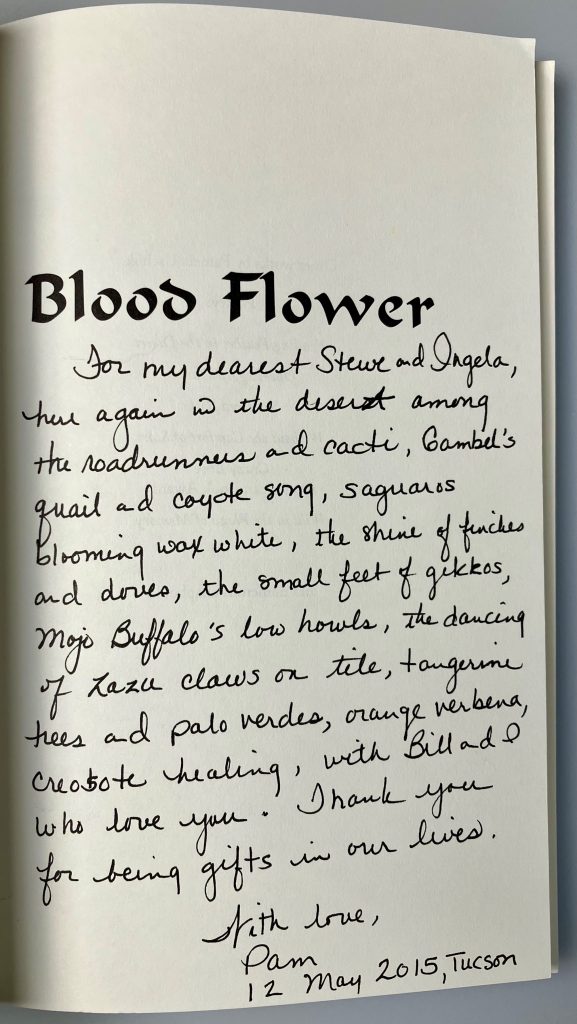 Blood Flower
For my dearest Steve and Ingela,
here again in the desert among
the roadrunners and cacti, Gambel's
quail and coyote song, saguaros
blooming wax white, the shine of finches
and doves, the small feet of gekkos,
Mojo Buffalo's low howls, the dancing
of Zazu claws on tile, tangerine
trees and palo verdes, orange verbena,
creosote healing, with Bill and I
who love you. Thank you
for being gifts in our lives.
With love,
Pam
12 May 2015, Tucson